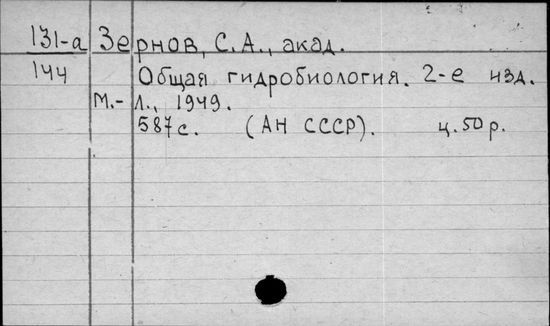 131-а Зернов, С.А., акад.
144 Общая гидробиология. 2-е изд.
М.-Л., 1949.
587с. (АН СССР). ц.50р.